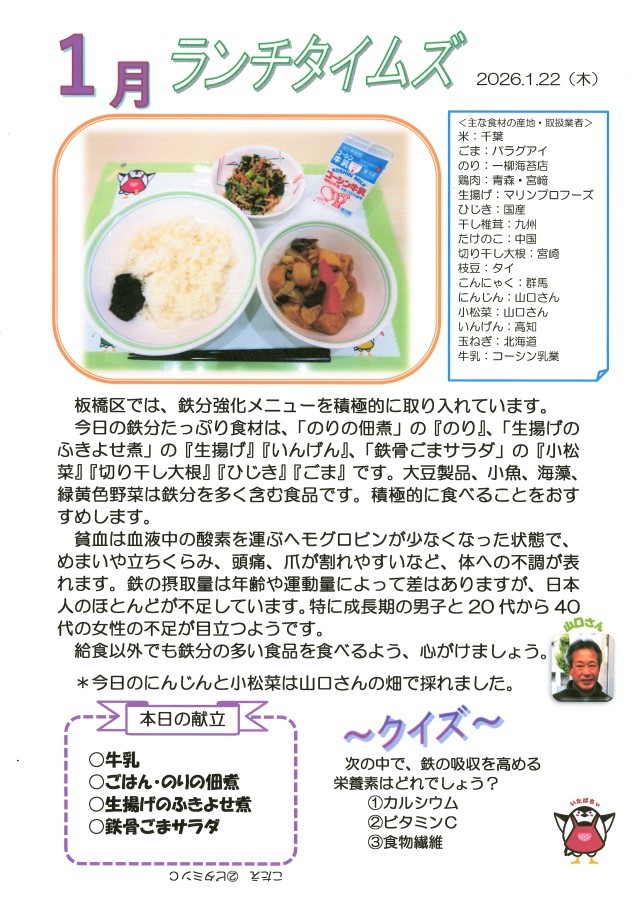 1月 ランチタイムズ 2026.1.22（木）
＜主な食材の産地・取扱業者＞
米：千葉
ごま：パラグアイ
のり：一柳海苔店
鶏肉：青森・宮崎
生揚げ：マリンプロフーズ
ひじき：国産
干し椎茸：九州
たけのこ：中国
切り干し大根：宮崎
枝豆：タイ
こんにゃく：群馬
にんじん：山口さん
小松菜：山口さん
いんげん：高知
玉ねぎ：北海道
牛乳：コーシン乳業
牛乳
コーシン牛乳
板橋区では、鉄分強化メニューを積極的に取り入れています。
今日の鉄分たっぷり食材は、「のりの佃煮」の『のり』、「生揚げの
ふきよせ煮」の『生揚げ』『いんげん』、「鉄骨ごまサラダ」の『小松
菜』『切り干し大根』『ひじき』『ごま』です。大豆製品、小魚、海藻、
緑黄色野菜は鉄分を多く含む食品です。積極的に食べることをおす
すめします。
貧血は血液中の酸素を運ぶヘモグロビンが少なくなった状態で、
めまいや立ちくらみ、頭痛、爪が割れやすいなど、体への不調が表
れます。鉄の摂取量は年齢や運動量によって差はありますが、日本
人のほとんどが不足しています。特に成長期の男子と20代から40
代の女性の不足が目立つようです。
給食以外でも鉄分の多い食品を食べるよう、心がけましょう。
山口さん
＊今日のにんじんと小松菜は山口さんの畑で採れました。
本日の献立
○牛乳
○ごはん・のりの佃煮
○生揚げのふきよせ煮
○鉄骨ごまサラダ
～クイズ～
次の中で、鉄の吸収を高める
栄養素はどれでしょう？
①カルシウム
②ビタミンC
③食物繊維
いたばるぃ
こたえ ②ビタミンC